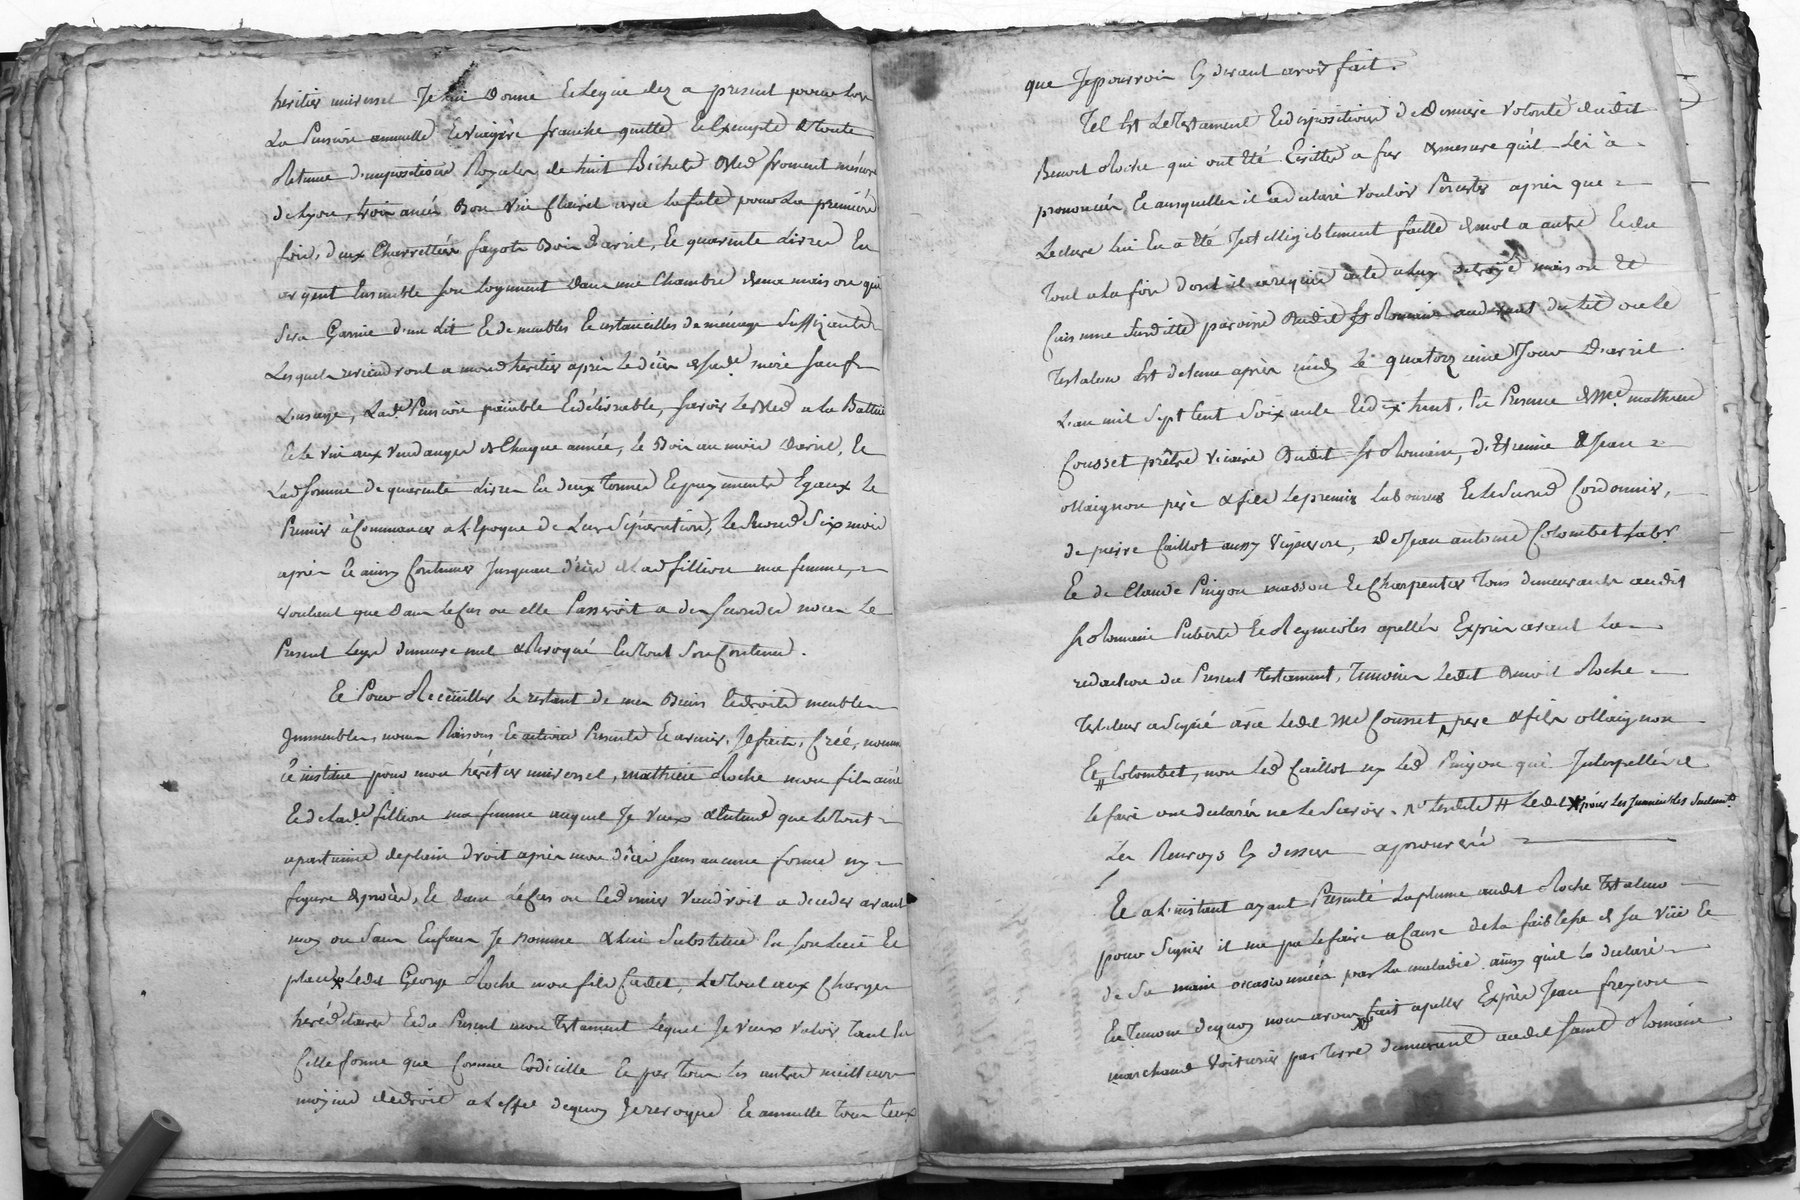 héritier universel Je lui donne Et Legue dez a present pour Lors
La Pension annuelle Et viagère franche quitte Et Exempte de toute
Retenue d'imposition Royales, de huit Bichets Bled froment mesure
de Lyon, trois anées Bon vin Clairet avec la futé pour La première
fois, deux Charretées fagots Bois d'avril, Et quarente Livres En
argent Ensemble son Logement dans une Chambre de ma maison qui
sera Garnie d'un Lit Et de meubles Et ustancilles de ménage Suffizants
Lesquels reviendront a mond. héritier après Le décès de sad. mère sauf
L'usage, Lade Pension païable Et délivrable, savoir Le Bled a la Batture
Et le vin aux vendanges de Chaque année, Le Bois au mois d'avril, Et
Lad somme de quarente Livres En deux termes Et payements Egaux Le
Premier à Commencer a L'Epoque de Leur Séparation, Le second Six mois
après Et ainsy Continuer Jusquau décès de Lad fillion ma femme,
voulant que dans le Cas ou elle Passeroit a de secondes noces Le
Present Legs demeure nul & Revoqué En tout son Contenu.
Et Pour Recüeillir Le restant de mes Biens Et droits meubles
Immeubles, noms Raisons Et actions Presents Et avenir, Je fais, Créé, nomme
Et institue pour mon héritier universel, mathieu Roche mon fils ainé
Et de lade fillion ma femme auquel Je veux & Entend que Le tout
apartienne de plain droit après mon décès sans aucune forme ny
figure de procès, Et dans Le Cas ou Ce dernier viendroit a deceder avant
moy ou sans Enfans Je nomme & lui Substitue En son lieu Et
place Ledit George Roche mon fils Cadet, Le tout aux Charges
héréditaires Et du Present mon testament Lequel Je veux valoir tant En
Cette forme que Comme Codicille Et par tous Les autres meilleurs
moyens de droit a L'effet dequoy Je revoque Et annulle tous Ceux
que Je pourrois Cy devant avoir fait.
Tel Est Le testament Et disposition de Derniere volonté dudit
Benoit Roche qui ont été Ecrittes a fur & mesure qu'il Les à
prononcées, Et ausquelles il a déclaré vouloir Persister après que
Lecture lui En a été Intelligiblement faitte de mot a autre Et du
tout a la fois dont il a requis acte a Lui octroyé maison Et
Cuisine Susditte paroisse dudit St Romain au devant du lit ou le
testateur Est detenu après midy Le quatorzieme Jour d'avril
L'an mil Sept Cent Soixante Et dix huit, En Presence de Me mathieu
Cousset prêtre vicaire dudit St Romain, d'Etienne & Jean
Maignon père & fils Le premier Laboureur Et le second Cordonnier,
de pierre Caillot aussy vigneron, de Jean antoine Colombet Labr.
Et de Claude Pinyon masson Et Charpentier tous demeurants audit
St Romain Puberts Et Regnicoles apellés Exprès avant La
redaction du Present testament, temoins Ledit Benoit Roche
testateur a signé avec Ledit Me Cousset, père & fils Maignon
Et Colombet, non Led Caillot ny Led Pinyon qui Interpellés de
le faire ont declarés ne Le Savoir. Ledit pour Les Immeubles seulemt.
Les Renvoys Cy dessus approuvés
Et a L'instant ayant Presenté La plume audit Roche testateur
pour signer il n'a pu Le faire a Cause de la faiblesse de sa vüe Et
de Sa main occasionnées par La maladie ainsy qu'il la declaré
En temoins dequoy nous avons fait apeller Exprès Jean freycon
marchand voiturier par terre demeurant audit Saint Romain